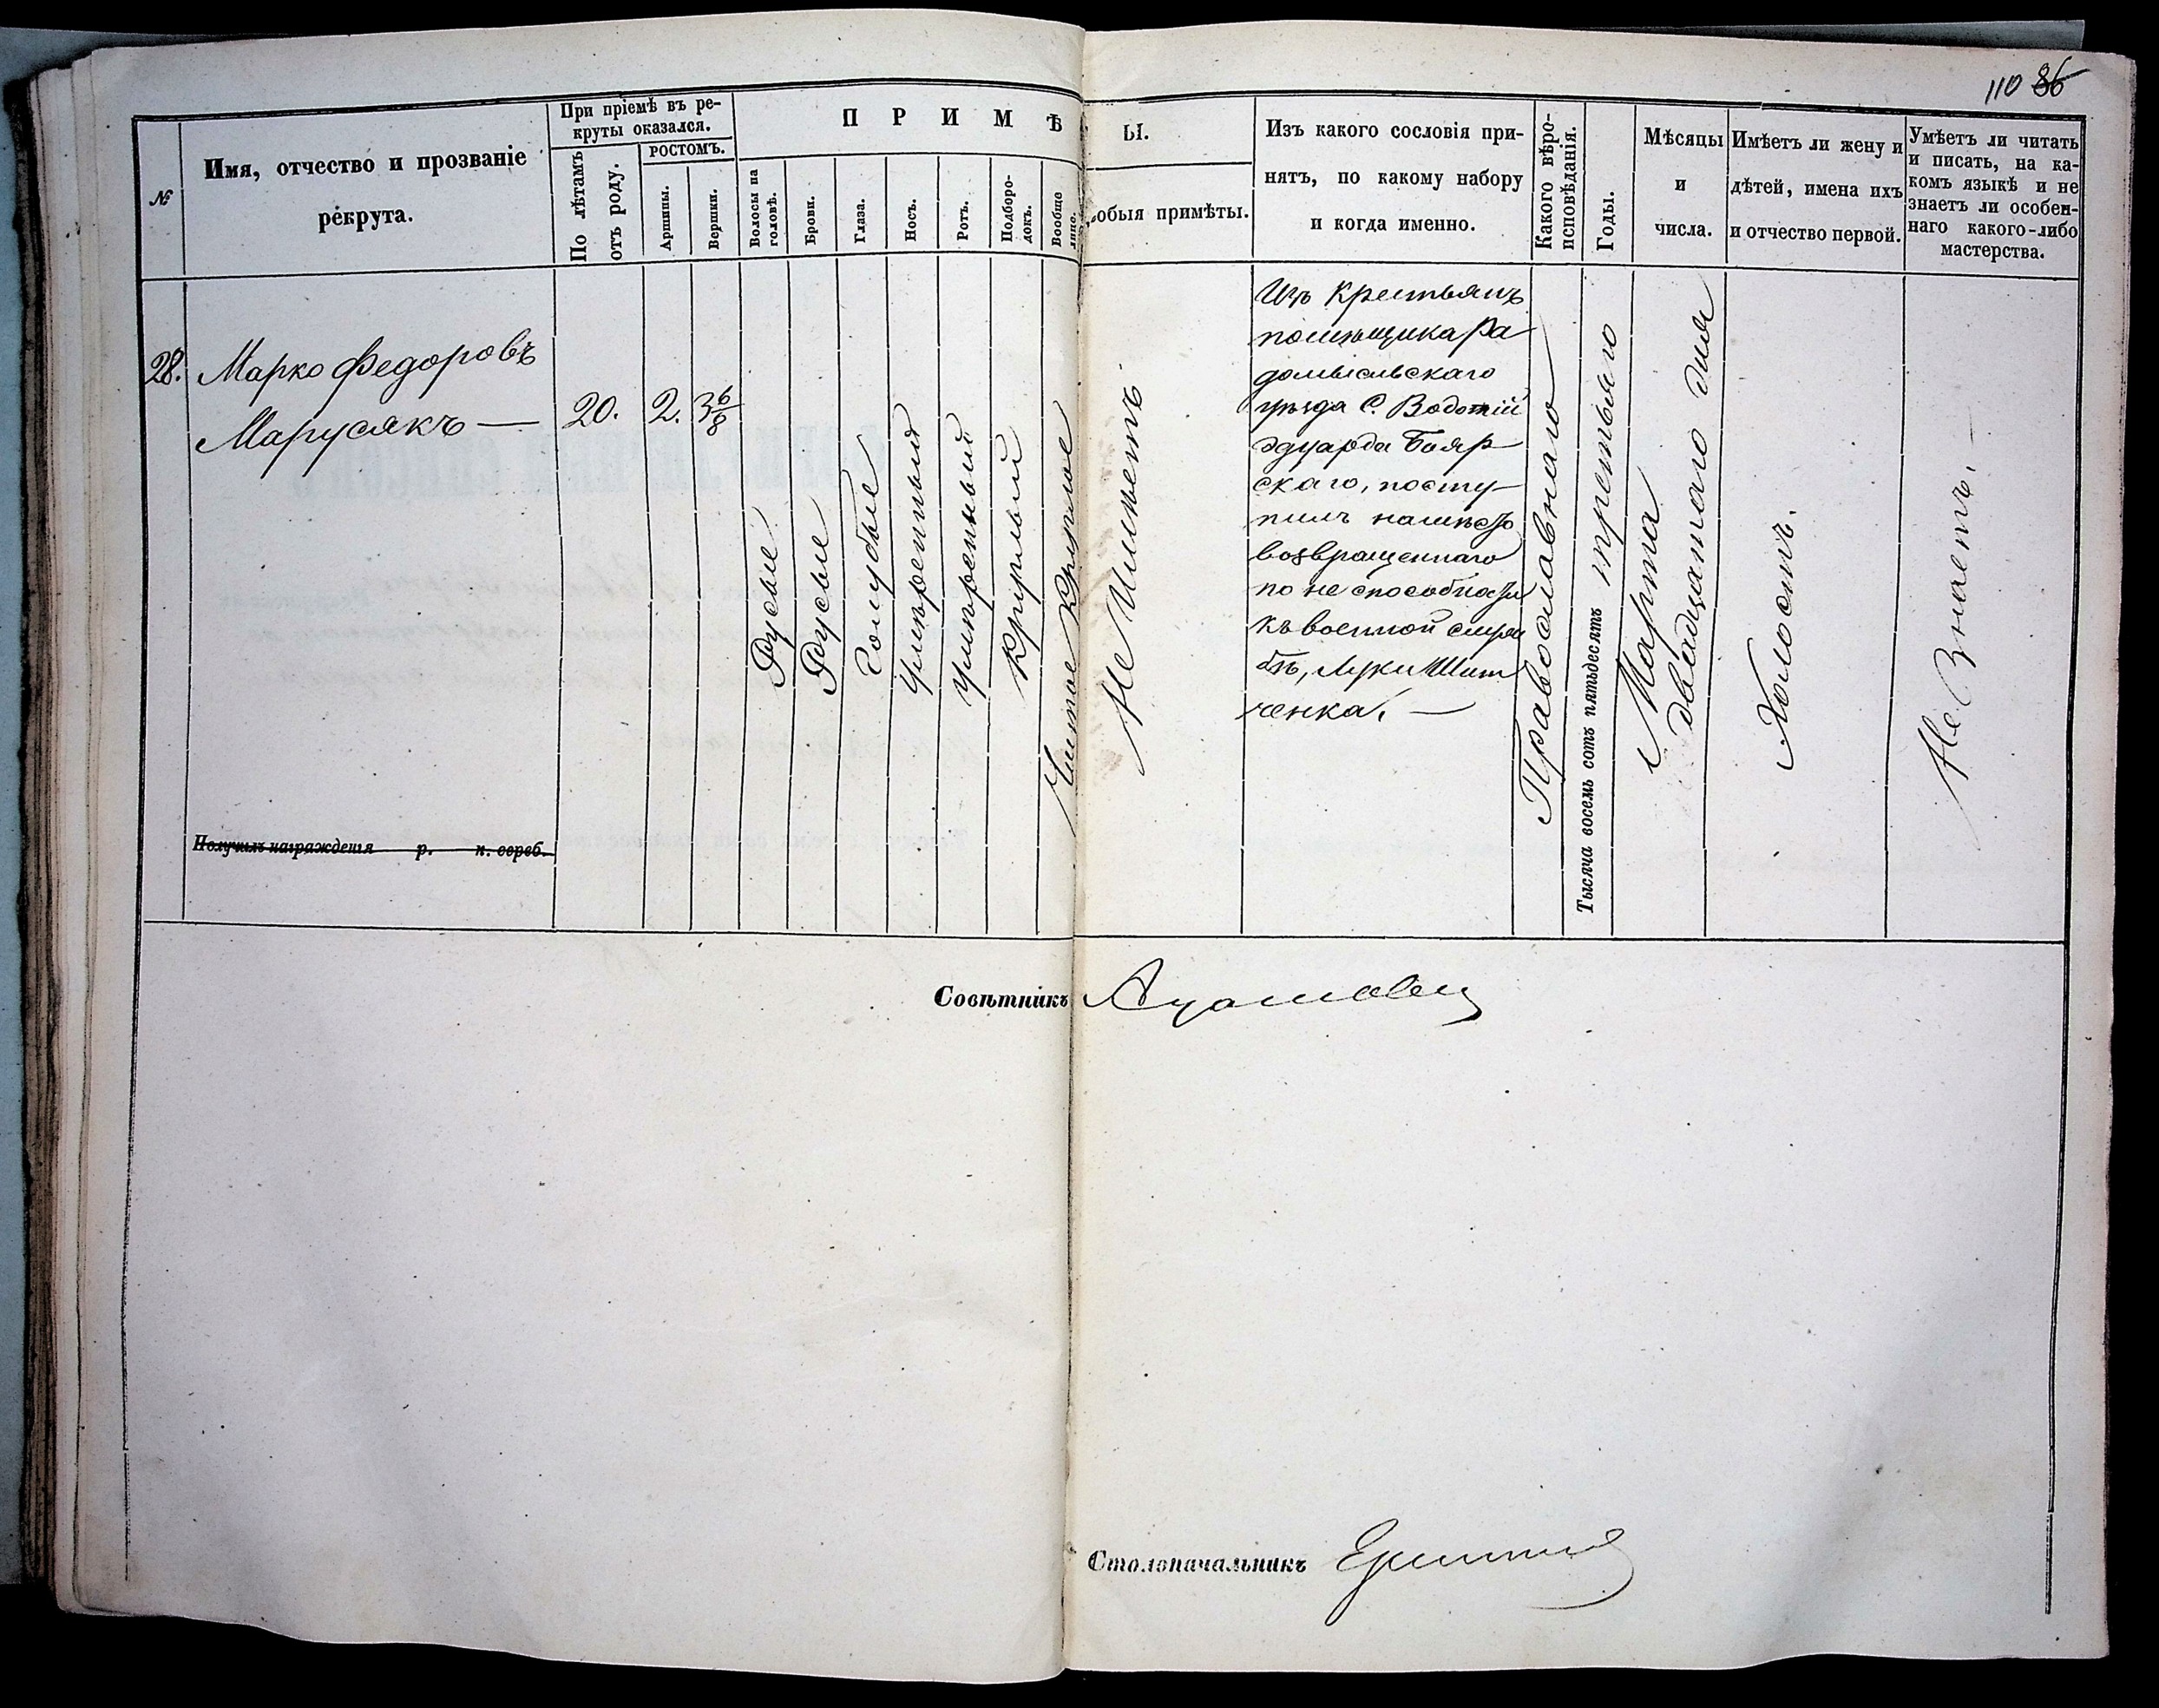 110 86
№
Имя, отчество и прозваніе
рекрута.
При пріемѣ въ ре-
круты оказался.
По лѣтамъ
отъ роду.
РОСТОМЪ.
Аршины.
Вершки.
П Р И М Ѣ
Волосы на
головѣ.
Брови.
Глаза.
Носъ.
Ротъ.
Подборо-
докъ.
Вообще
лице.
Ы.
обыя примѣты.
Изъ какого сословія при-
нятъ, по какому набору
и когда именно.
Какого вѣро-
исповѣданія.
Годы.
Мѣсяцы
и
числа.
Имѣетъ ли жену и
дѣтей, имена ихъ
и отчество первой.
Умѣетъ ли читать
и писать, на ка-
комъ языкѣ и не
знаетъ ли особен-
наго какого-либо
мастерства.
28.
Марко Федоровъ
Марусякъ —
20.
2.
3 6/8
Русые
Русые
Голубые
Умѣренный
Умѣренный
Круглый
Чистое Круглое
Не Имѣетъ
Изъ Крестьянъ
помѣщика Ра
домысльскаго
уѣзда С. Водотій
Эдуарда Бояр
скаго, посту-
пилъ намѣсто
возвращеннаго
по не способности
къ военной служ
бѣ, Луки Шит
ченка. —
Православнаго
Тысяча восемь сотъ пятьдесятъ третьяго
Марта
двадцатаго дня
Холостъ.
Не Знаетъ. —
Получилъ награжденія р. к. сереб.
Совѣтникъ
Столоначальникъ